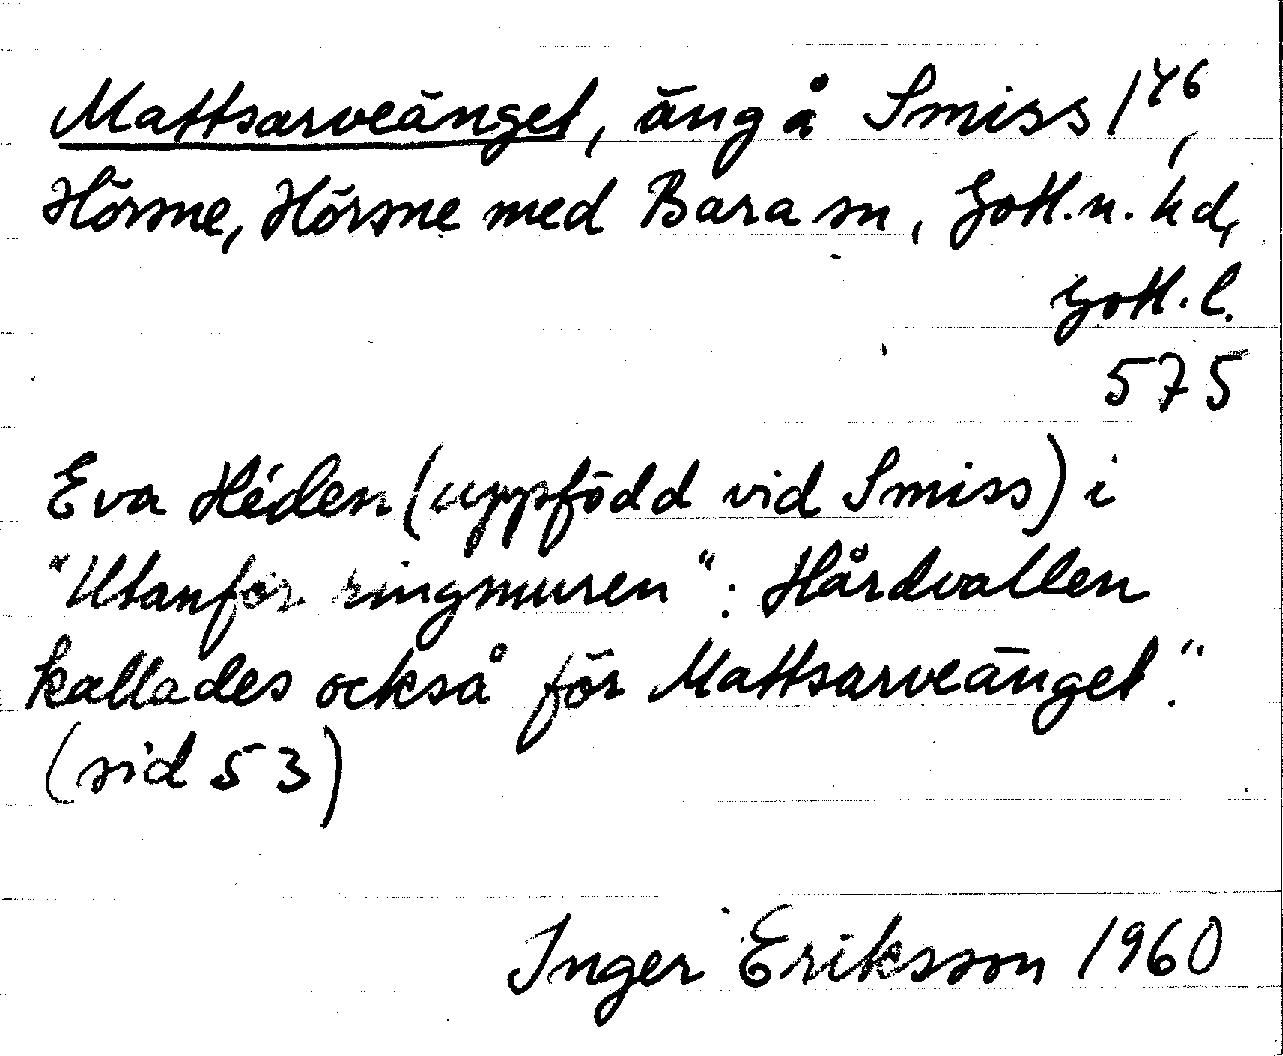 Mattsarveänget, äng å Smiss 1⁴⁶,
Hörsne, Hörsne med Bara sn, Gotl. n. hd,
Gotl. l.
575
Eva Héden (uppfödd vid Smiss) i
"Utanför ringmuren": Hårdvallen
kallades också för Mattsarveänget."
(sid 53)
Inger Eriksson 1960